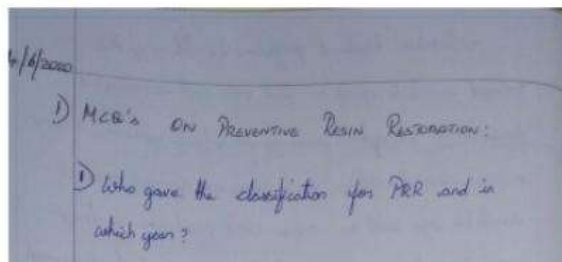 4/6/2020
1) MCQ's ON PREVENTIVE RESIN RESTORATION:
1) Who gave the classification for PRR and in
which year?